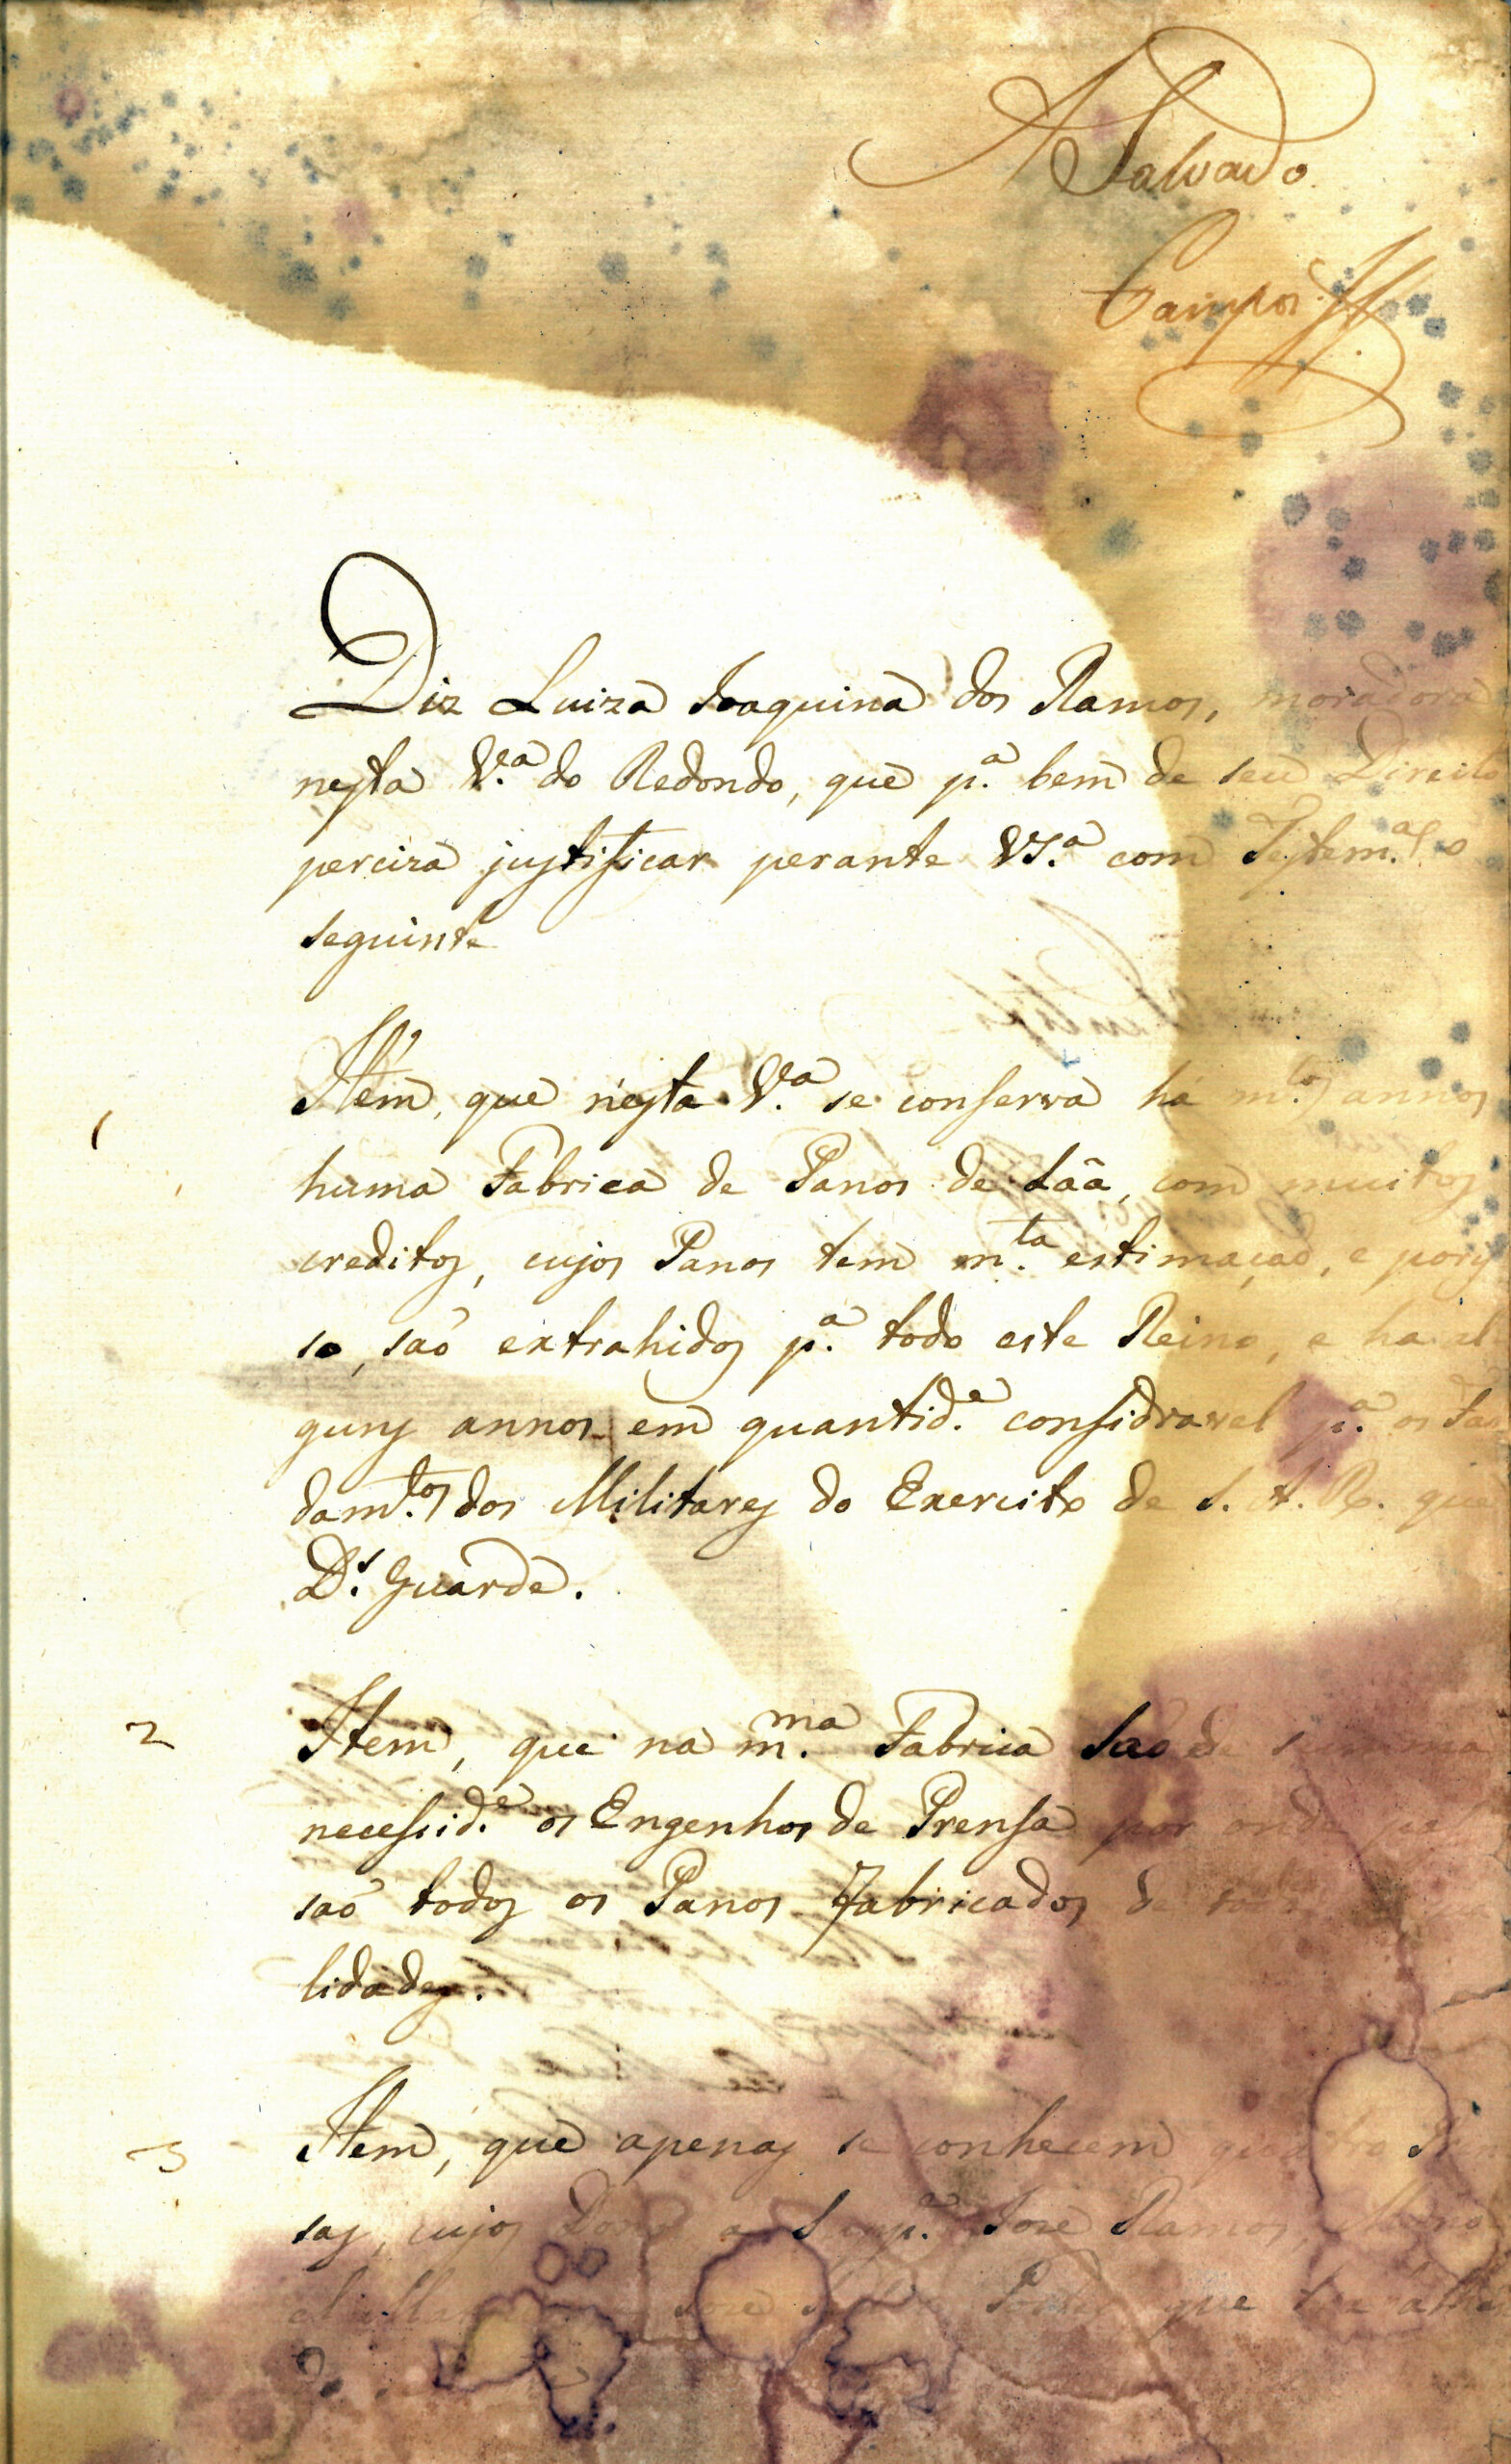 A Salvado
Campos
Diz Luiza Joaquina dos Ramos, moradora
nesta V.ª do Redondo, que p.ª bem de seu Direito
perciza justificar perante VS.ª com Testem.as o
seguinte
1
Item, que nesta V.ª se conserva há m.tos annos
huma Fabrica de Panos de Lãa, com muitos
creditos, cujos Panos tem m.ta estimação, e poriſ
so, são extrahidos p.ª todo este Reino, e ha al
guns annos em quantid.e conſidravel p.ª os Far
dam.tos dos Militares do Exercito de S. A. R. que
D.s Guarde.
2
Item, que na m.ma Fabrica são de summa
neceſsid.e os Engenhos de Prenſa por onde
são todos os Panos Fabricados de todas
lidades.
3
Item, que apenas se conhecem quatro Pren
sas, cujos Donos a Supp.e José Ramos,
José que